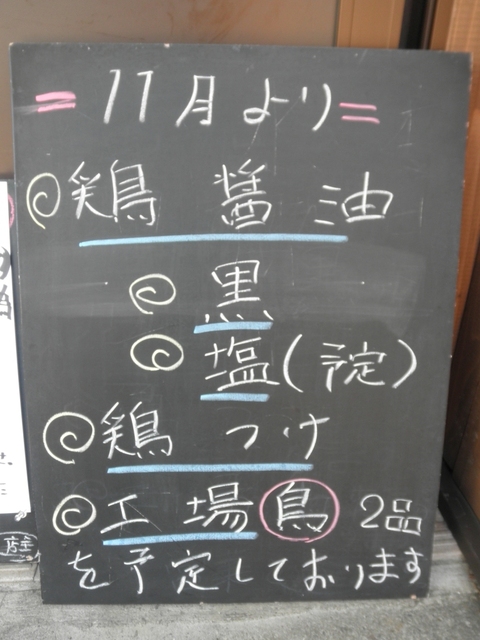 = 11月より =
鶏 醤 油
黒
塩(予定)
鶏 つけ
工 場 鳥 2品
を予定しております
店主